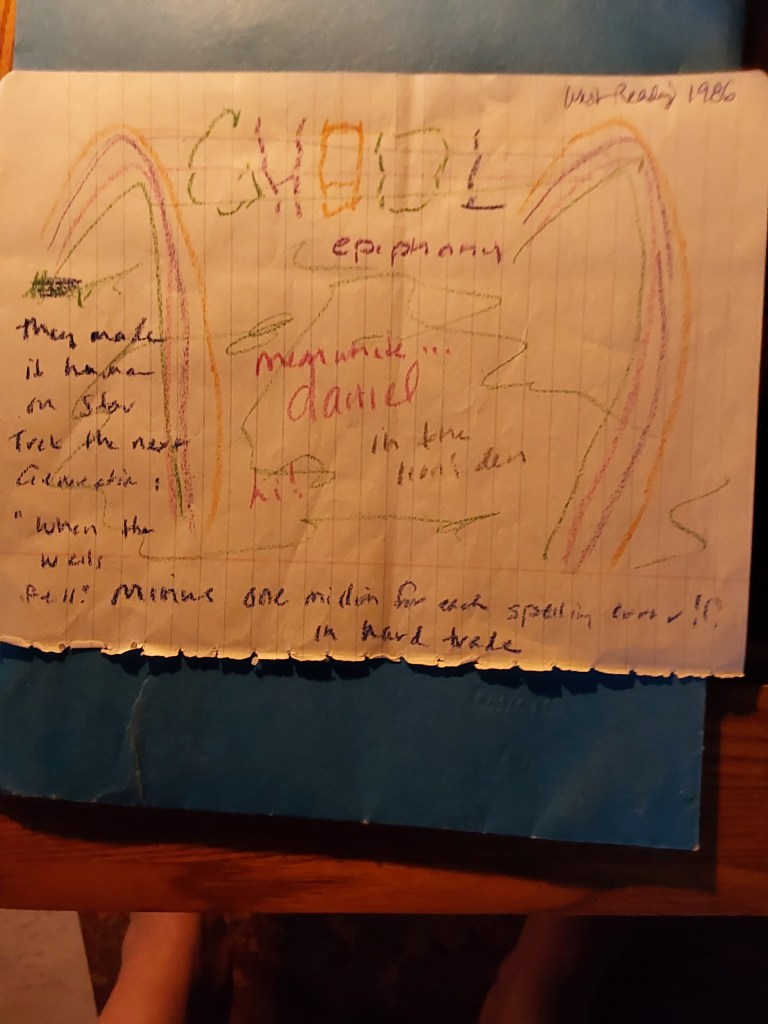 West Reading 1986
GHODL
epiphany
they made
it human
on Star
Trek the next
Generation:
"When the
walls
fell."
meanwhile...
daniel
in the
lion's den
hi!
Minus one million for each spelling error!!
in hard trade